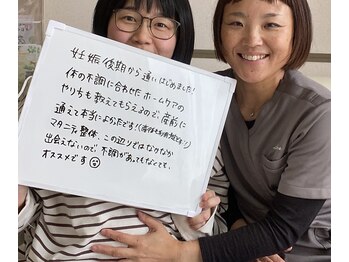 妊娠後期から通いはじめました!
体の不調に合わせたホームケアの
やり方も教えてもらえるので、産前に
通えて本当によかったです!
マタニティ整体、この辺りではなかなか
出会えないので、不調があってもなくても、
オススメです